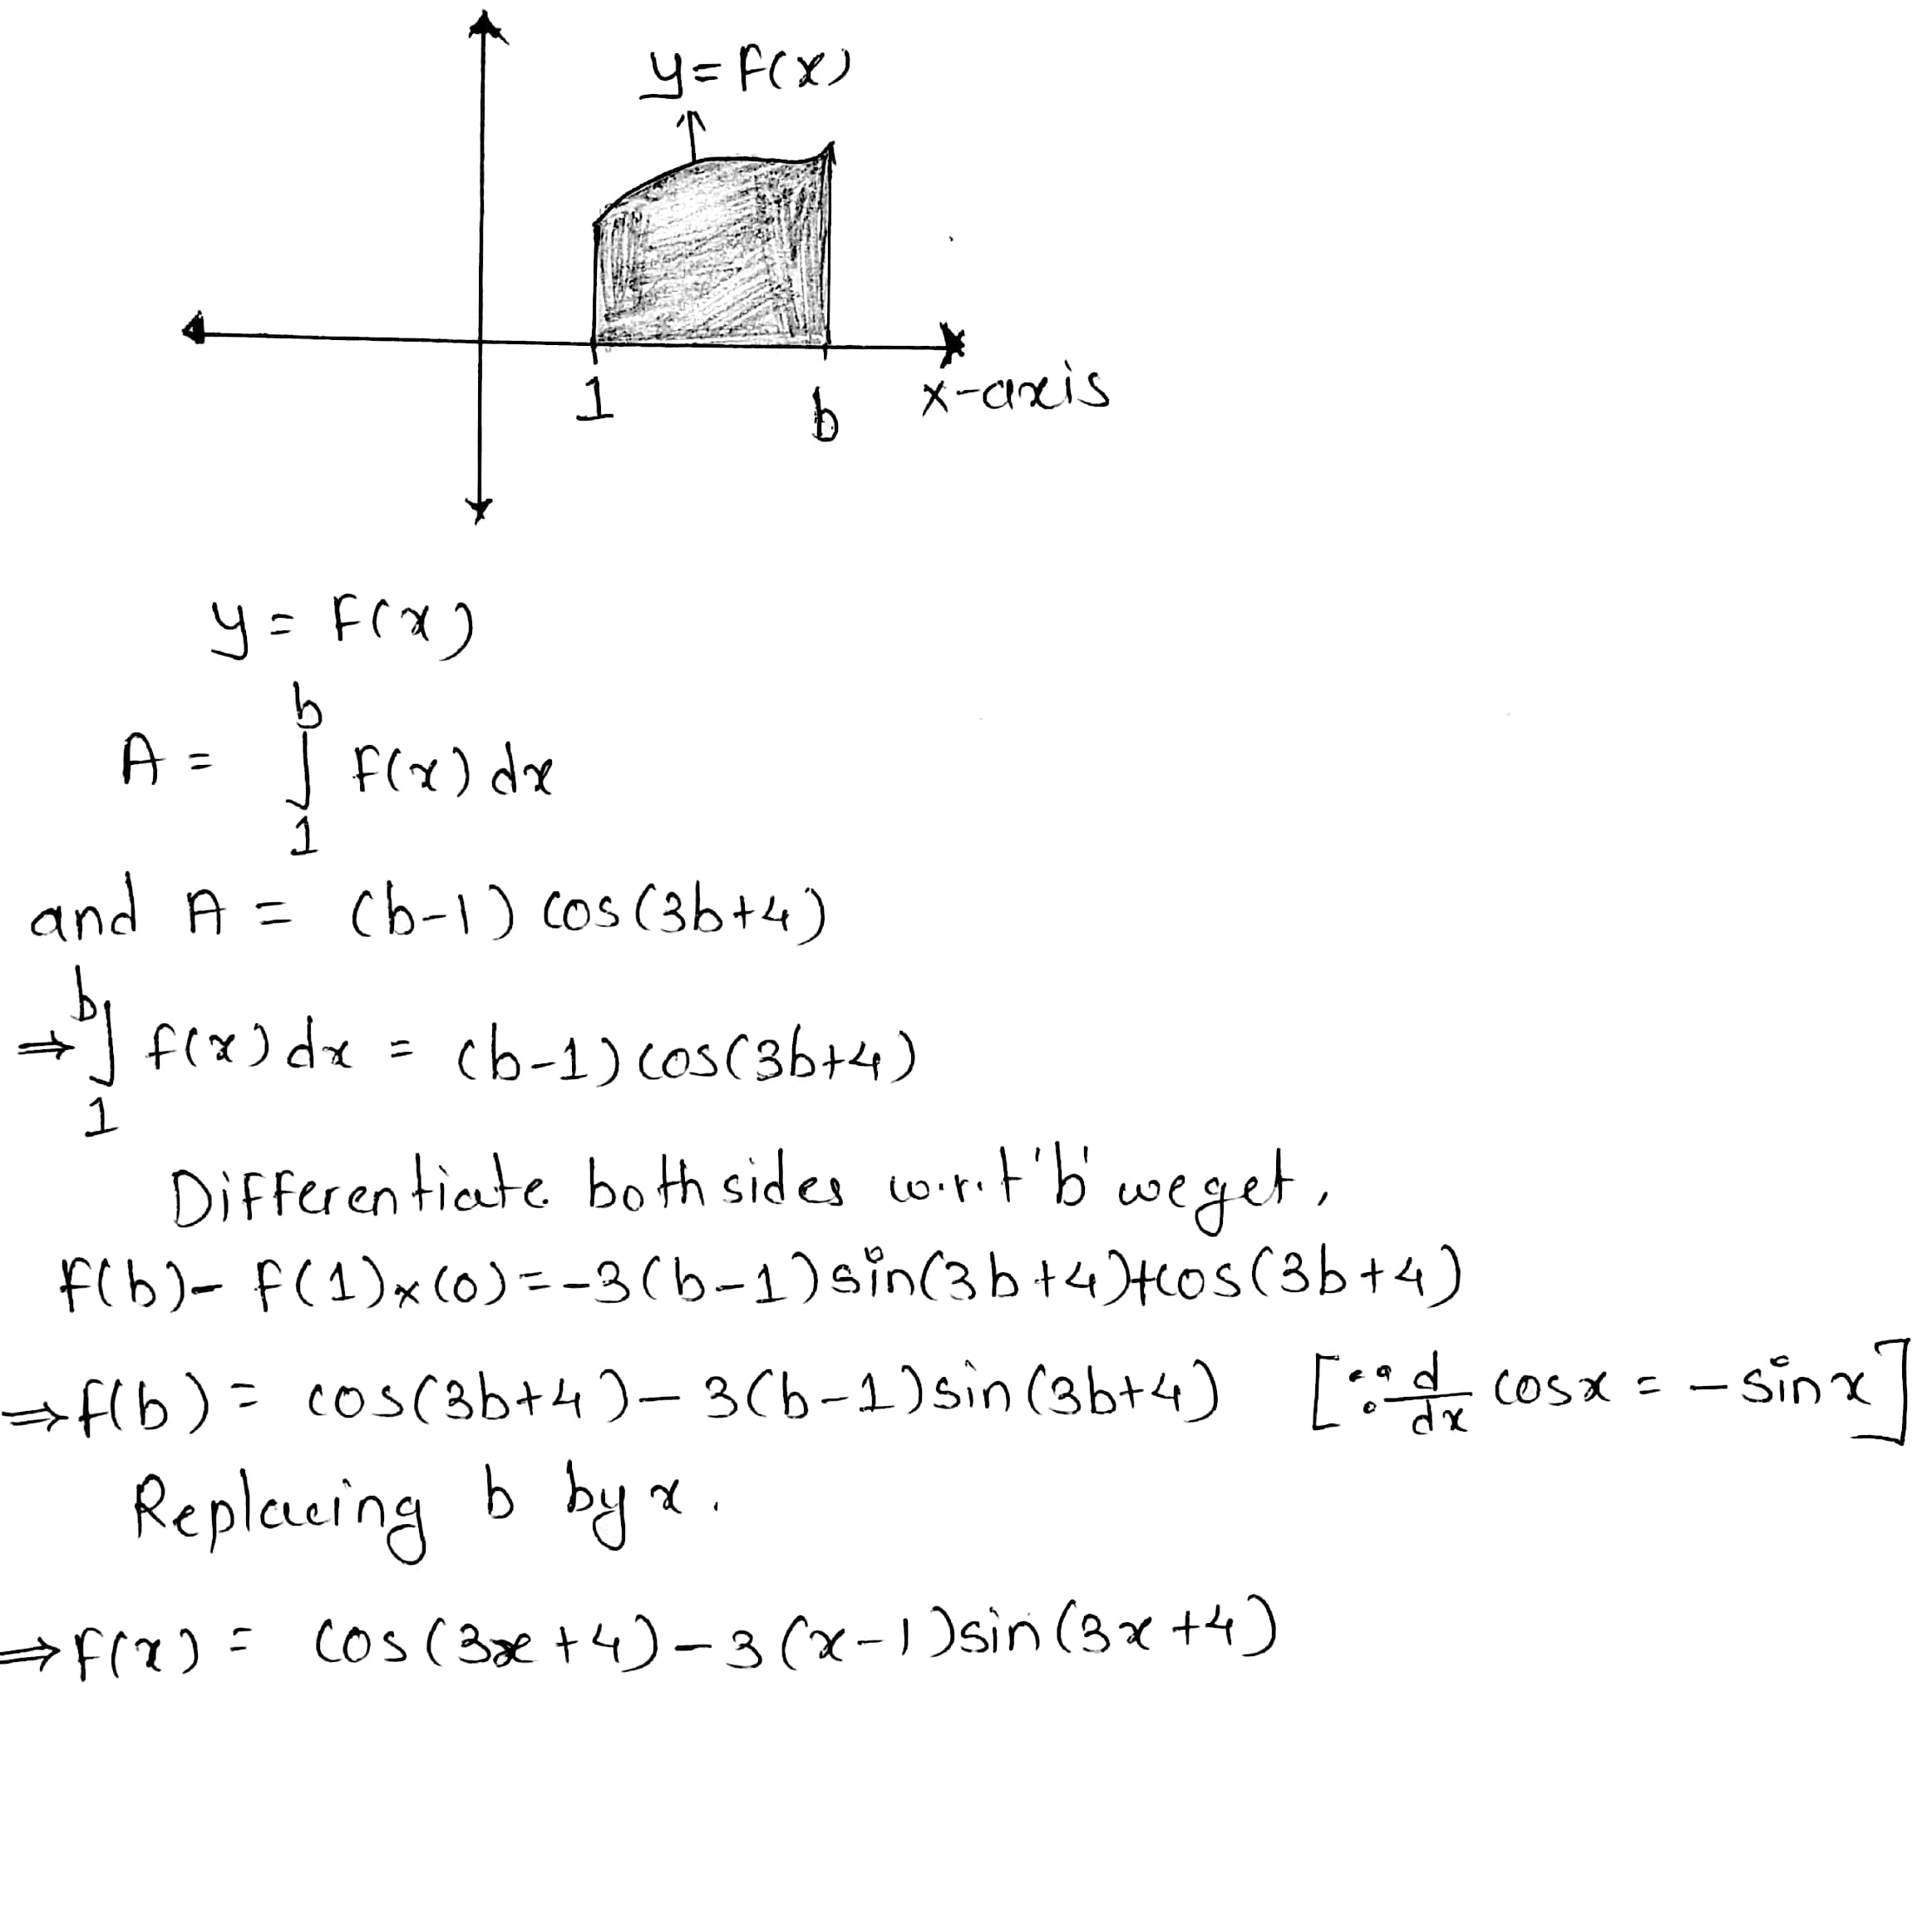 y = f(x)
1
b
x-axis
y = f(x)
A = ∫₁ᵇ f(x) dx
and A = (b-1) cos(3b+4)
⇒ ∫₁ᵇ f(x) dx = (b-1) cos(3b+4)
Differentiate both sides w.r.t 'b' we get,
f(b) - f(1) × (0) = -3(b-1) sin(3b+4) + cos(3b+4)
⇒ f(b) = cos(3b+4) - 3(b-1) sin(3b+4) [∵ d/dx cosx = - sinx]
Replacing b by x.
⇒ f(x) = cos(3x+4) - 3(x-1) sin(3x+4)